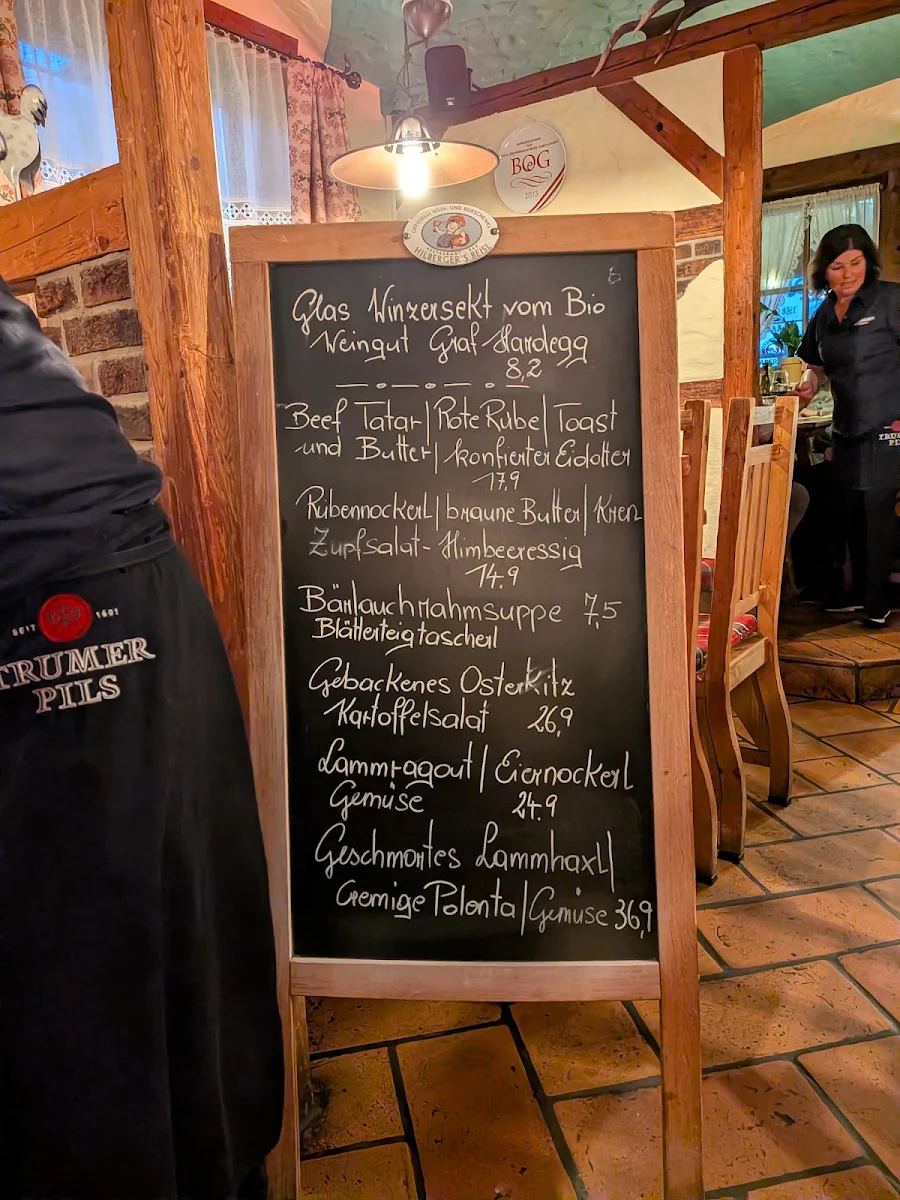 BÖG
2013
OFFIZIELLE WEIN- UND BIERSCHENKE
HILBERGER'S BEISL
Glas Winzersekt vom Bio
Weingut Graf Hardegg
8,2
Beef Tatar | Rote Rübe | Toast
und Butter | konfierter Eidotter
17,9
Rübennockerl | braune Butter | Kren
Zupfsalat - Himbeeressig
14,9
Bärlauchrahmsuppe 7,5
Blätterteigtascherl
Gebackenes Osterkitz
Kartoffelsalat 26,9
Lammragout | Eiernockerl
Gemüse 24,9
Geschmortes Lammhaxl |
Cremige Polenta | Gemüse 36,9
SEIT 1601
TRUMER
PILS
TRUMER
PILS